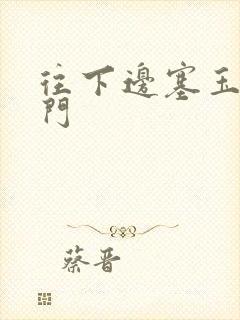 往下邊塞玉
門
蔡晋